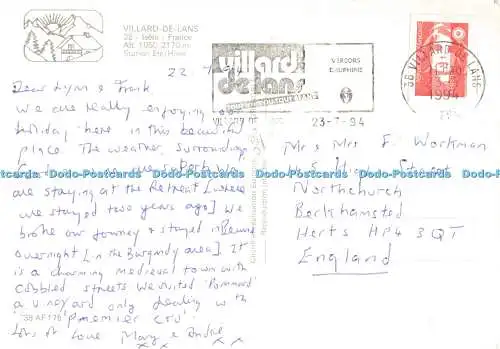 VILLARD-DE-LANS
38 - Isère - France
Alt. 1050/2170 m
Station Eté/Hiver
22
villard de lans
VERCORS
DAUPHINE
23-7-94
38 VILLARD DE LANS
1994
Dear Lynn & Frank
We are really enjoying our
holiday here in this beautiful
place. The weather, surroundings,
are superb. We
are staying at the Retreat [where
we stayed two years ago] We
broke our journey & stayed in Beaune
overnight [in the Burgundy area]. It
is a charming medieval town with
cobbled streets we visited 'Pommard'
a vineyard only dealing with
'premier cru'.
Lots of Love Mary & André
x x x
38 AF 178
Mr & Mrs F Workman
Street
Northchurch
Berkhamsted
Herts HP4 3QT
England
Dodo-Postcards Dodo-Postcards Dodo-Postcards Dodo-Postcards